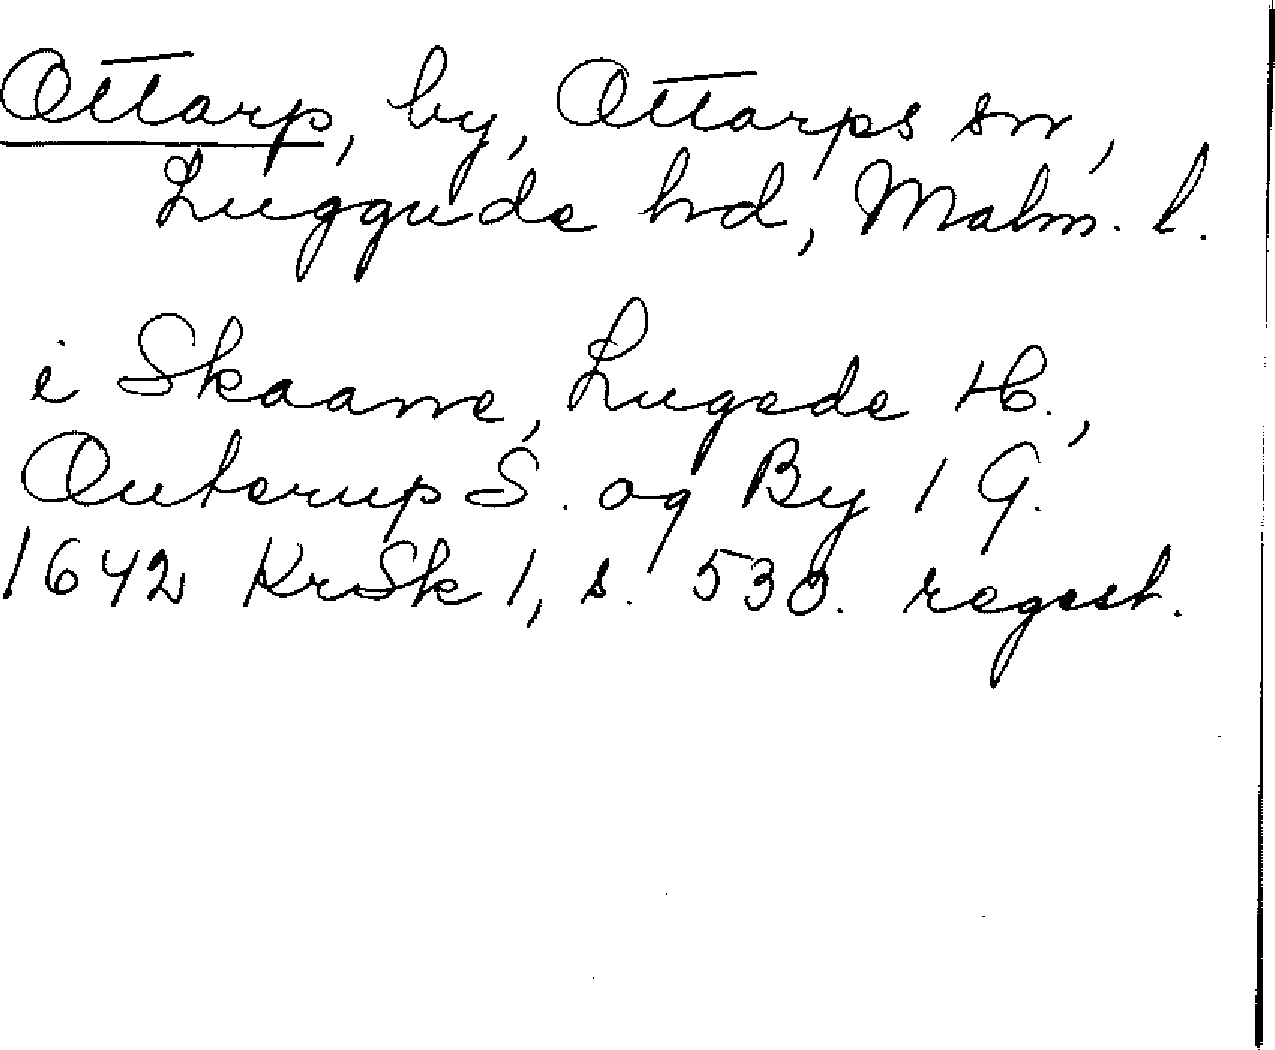 Ottarp, by, Ottarps sn,
Luggude hd, Malm. l.
i Skaane, Lugede H.,
Outerup S. og By 1 G.
1642 KrSk 1, s. 530. regest.